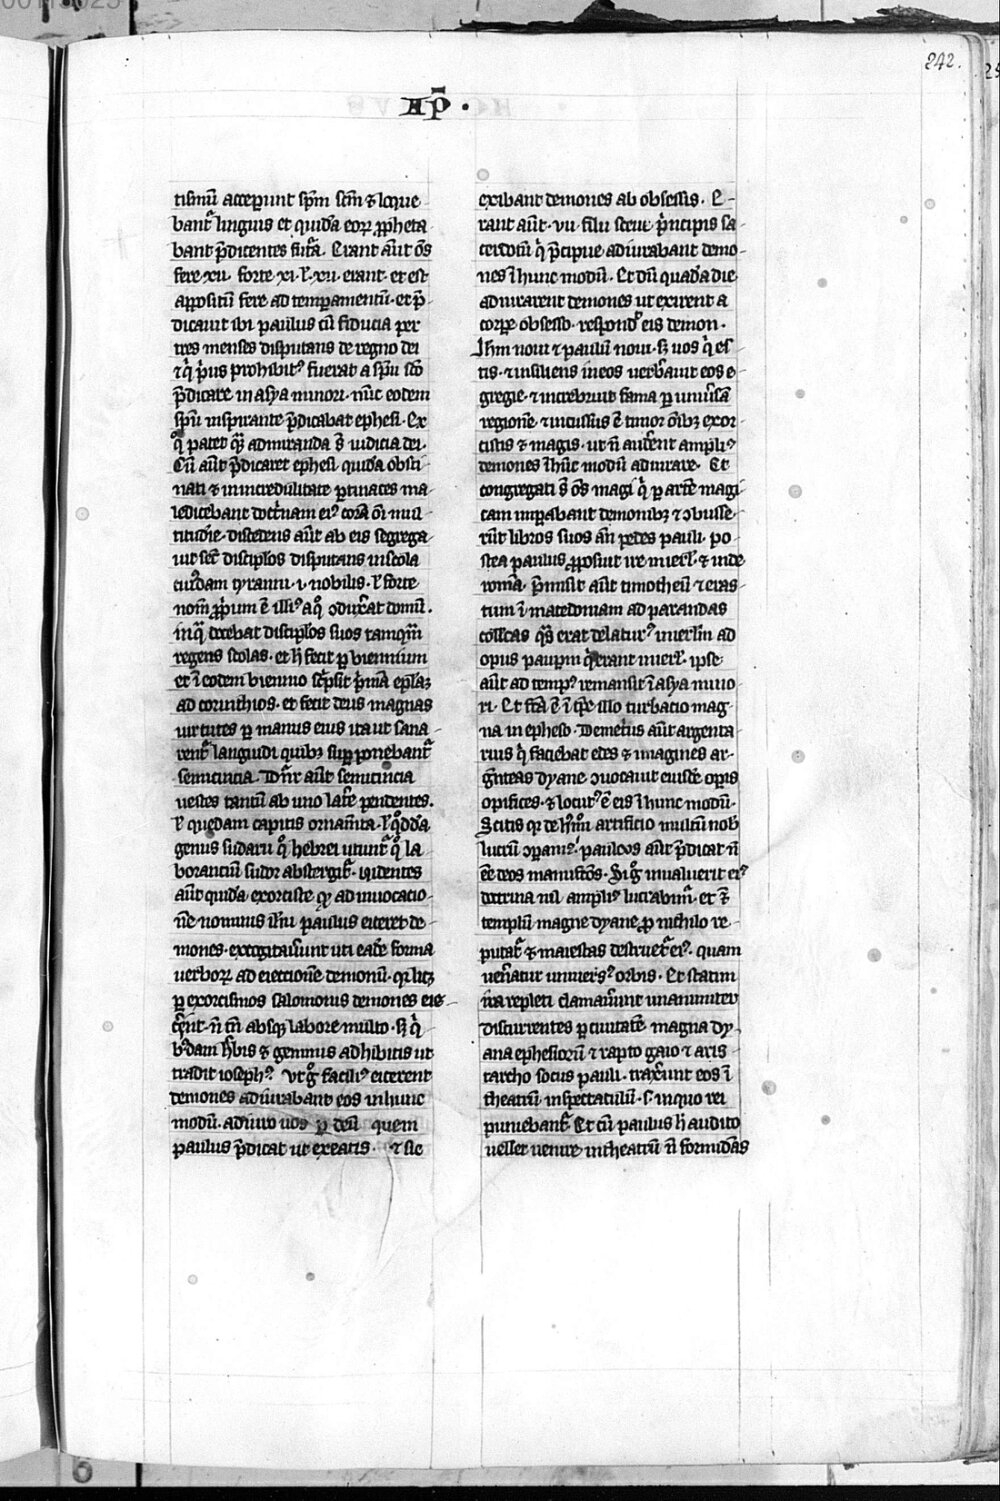 242.
Ap̄.
tismū acceperunt spm̄ scm̄ ⁊ loque
bant᷑ linguis et quidā eoꝝ ꝓpheta
bant p̄dicentes fut᷑a. Erant aūt oēs
fere xii. forte xi. l xii. erant. et est
appositū fere ad temperamentū. et p̄
dicauit ibi paulus cū fiducia per
tres menses disputans de regno dei
⁊ q̇ pius prohibitꝰ fuerat a spū sco
p̄dicare in asya minori. nūc eodem
spū inspirante p̄dicabat ephesi. Ex
q̊ patet qꝫ admiranda s̄ iudicia dei.
Cū aūt p̄dicaret ephesi quidā obsti
nati ⁊ in incredulitate ꝑtinaces ma
ledicebant doct̄nam eiꝰ corā oī mul
titudīe. discedens aūt ab eis segrega
uit sec̄ discip̄los disputans in scola
cuiꝰdam tyranni .i. nobilis. l forte
nom̄ ꝓprium ē illiꝰ a q̊ ↄdux̄at domū.
in q̄ docebat discip̄los suos tamqm̄
regens scolas. et h̄ fecit ꝑ biennium
et ī eodem biennio sc̄psit p̄mā ep̄laꝫ
ad corinthios. et fecit deus magnas
uirtutes ꝑ manus eius ita ut sana
rent᷑ languidi quibꝫ suꝑponebant᷑
semicincia. Dn̄r aūt semicincia
uestes tantū ab uno lat̄e pendentes.
l quedam capitis ornam̄ta. l q̊ddā
genus sudarii q̊ hebrei utunt᷑ q̊ la
borancium sudor abstergit᷑. uidentes
aūt quidā exorciste qꝫ ad inuocacio
nē nominis ih̄u paulus eiceret de
mones. excogitau̅unt uti eadē forma
uerboꝝ ad eiectionē demonū. qꝛ licꝫ
ꝑ exorcismos salomonis demones eie
c̄ent. n̄ tn̄ absqꝫ labore multo. sꝫ q̇
bꝰdam h̄bis ⁊ gemmis adhibitis ut
tradit iosephꝰ. Vt g̊ faciliꝰ eicerent
demones adiurabant eos in hunc
modū. adiuro uos ꝑ deū quem
paulus p̄dicat ut exeatis. ⁊ sic
exibant demones ab obsessis. E
rant aūt .vii. filii sceue p̄ncipis sa
cerdotū q̇ p̄cipue adiurabant demo
nes ī hunc modū. Et dū quadā die
adiurarent demones ut exirent a
corꝑe obsesso. respondꝰ eis demon.
Ihm̄ noui ⁊ paulū noui. sꝫ uos q̇ es
tis. ⁊ insiliens in eos uerb̄auit eos e
gregie. ⁊ increbruit fama ꝑ uniu̅sā
regionē. ⁊ incussus ē timor oībꝫ exor
cistis ⁊ magis. ut n̄ aud̄ent ampliꝰ
demones ī hūc modū adiurare. Et
congregati s̄ oēs magi q̇ ꝑ artē magi
cam impabant demonibꝫ ⁊ ↄbusse
rūt libros suos an̄ pedes pauli. po
stea paulus ꝓposuit ire in ierl̄. ⁊ inde
romā. p̄misit aūt timotheū ⁊ eras
tum ī macedoniam ad parandas
coll̄cas qᷤ erat delaturꝰ in ierlm̄ ad
opus pauꝑum q̇ erant in ierl̄. ipse
aūt ad tempꝰ remansit ī asya mino
ri. Et fc̄a ē ī tp̄e illo turbacio mag
na in epheso. Demetius aūt argenta
rius q̇ faciebat edes ⁊ imagines ar
gn̄teas dyane ↄuocauit eiusdē oꝑis
opifices. ⁊ locutꝰ ē eis ī hunc modū.
Scitis qꝛ de h̄m̊i artificio multū nob̄
lucrū ↄparamꝰ. paulus aūt p̄dicat n̄
eē deos manuf̄cos. Si g̊ inualuerit eiꝰ
doctrina nil ampliꝰ lucrabim᷑. et ⁊
templū magne dyane ꝓ nichilo re
putat᷑ ⁊ maiestas destruet᷑ eiꝰ. quam
ueneratur uniuersꝰ orbis. Et statim
ira repleti clamau̅unt unanimiter
discurrentes ꝑ ciuitatē magna dy
ana ephesiorū ⁊ rapto gaio ⁊ aris
tarcho sociis pauli. trax̄unt eos ī
theatrū in spectaculū .s. in quo rei
puniebant᷑. Et cū paulus h̄ audito
uellet uenire in theatrū n̄ formidās